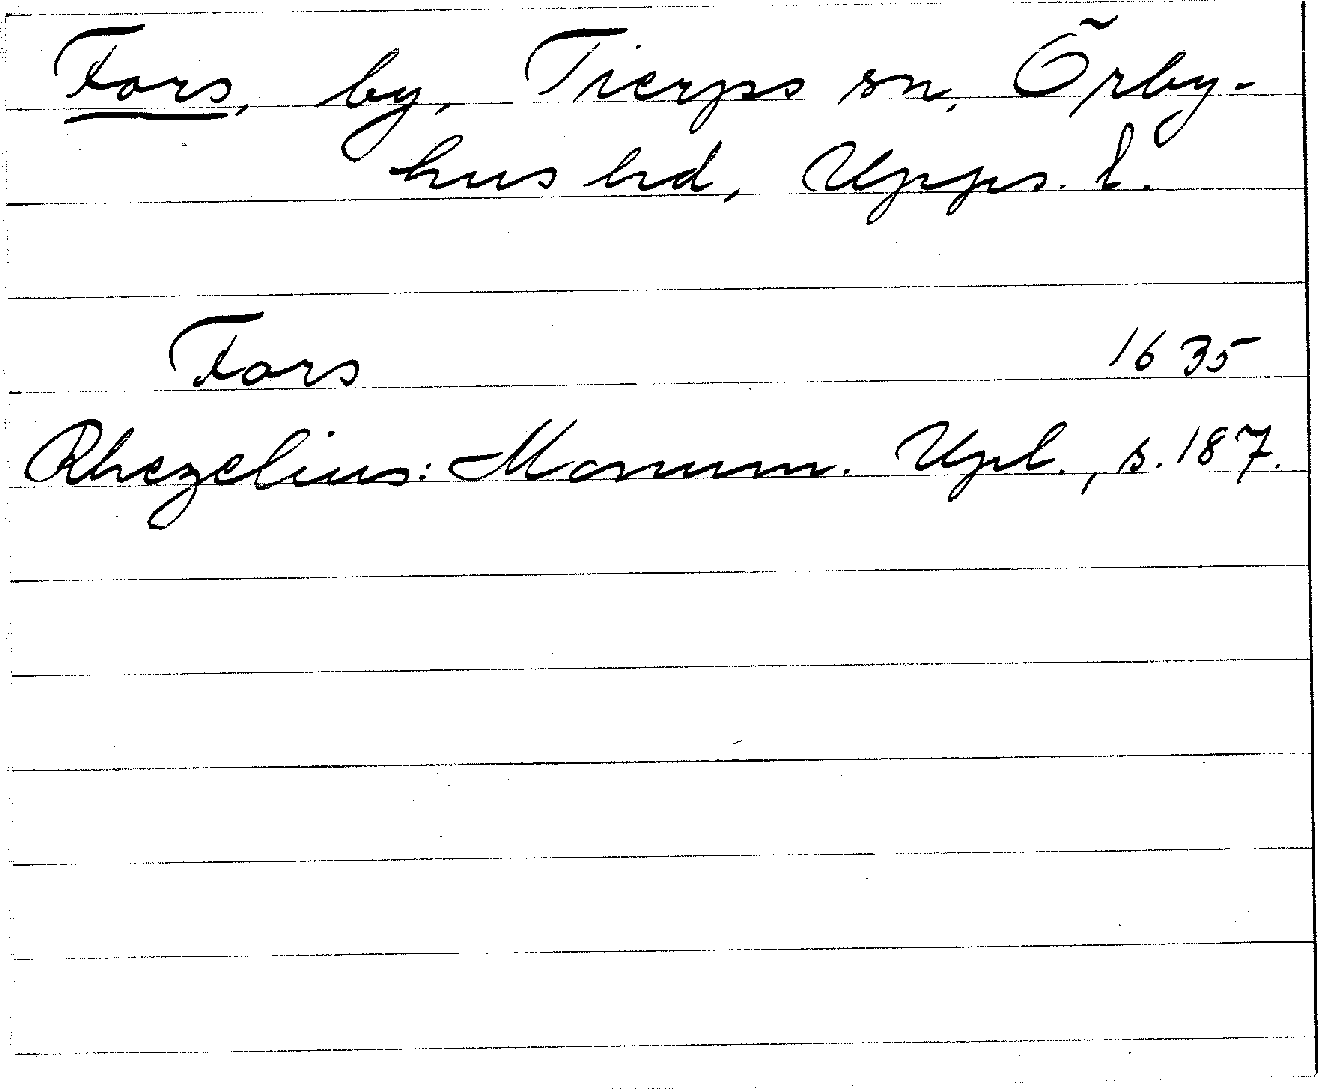 Fors, by, Tierps sn, Örby-
hus hd, Upps. l.
Fors 1635
Rhezelius: Monum. Upl., s. 187.